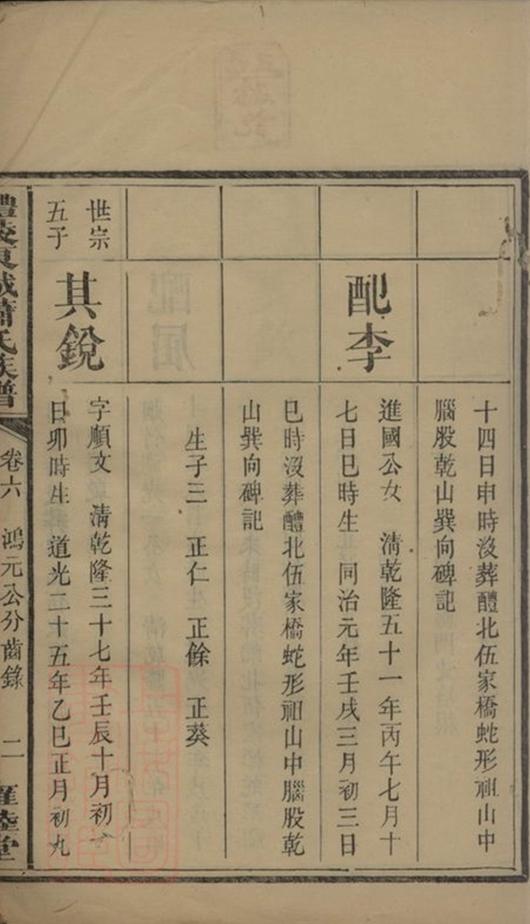 十四日申時沒葬醴北伍家橋蛇形祖山中
腦股乾山巽向碑記
配李
進國公女　清乾隆五十一年丙午七月十
七日巳時生　同治元年壬戌三月初三日
巳時沒葬醴北伍家橋蛇形祖山中腦股乾
山巽向碑記
生子三　正仁　正餘　正葵
世宗
五子
其銳
字順文　清乾隆三十七年壬辰十月初
日卯時生　道光二十五年乙巳正月初九
醴陵東城蕭氏族譜
卷六　鴻元公分齒錄　二
睦堂